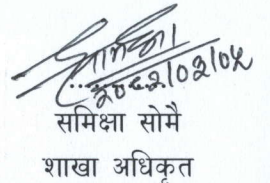 २०८२/०२/०५
समिक्षा सोमै
शाखा अधिकृत